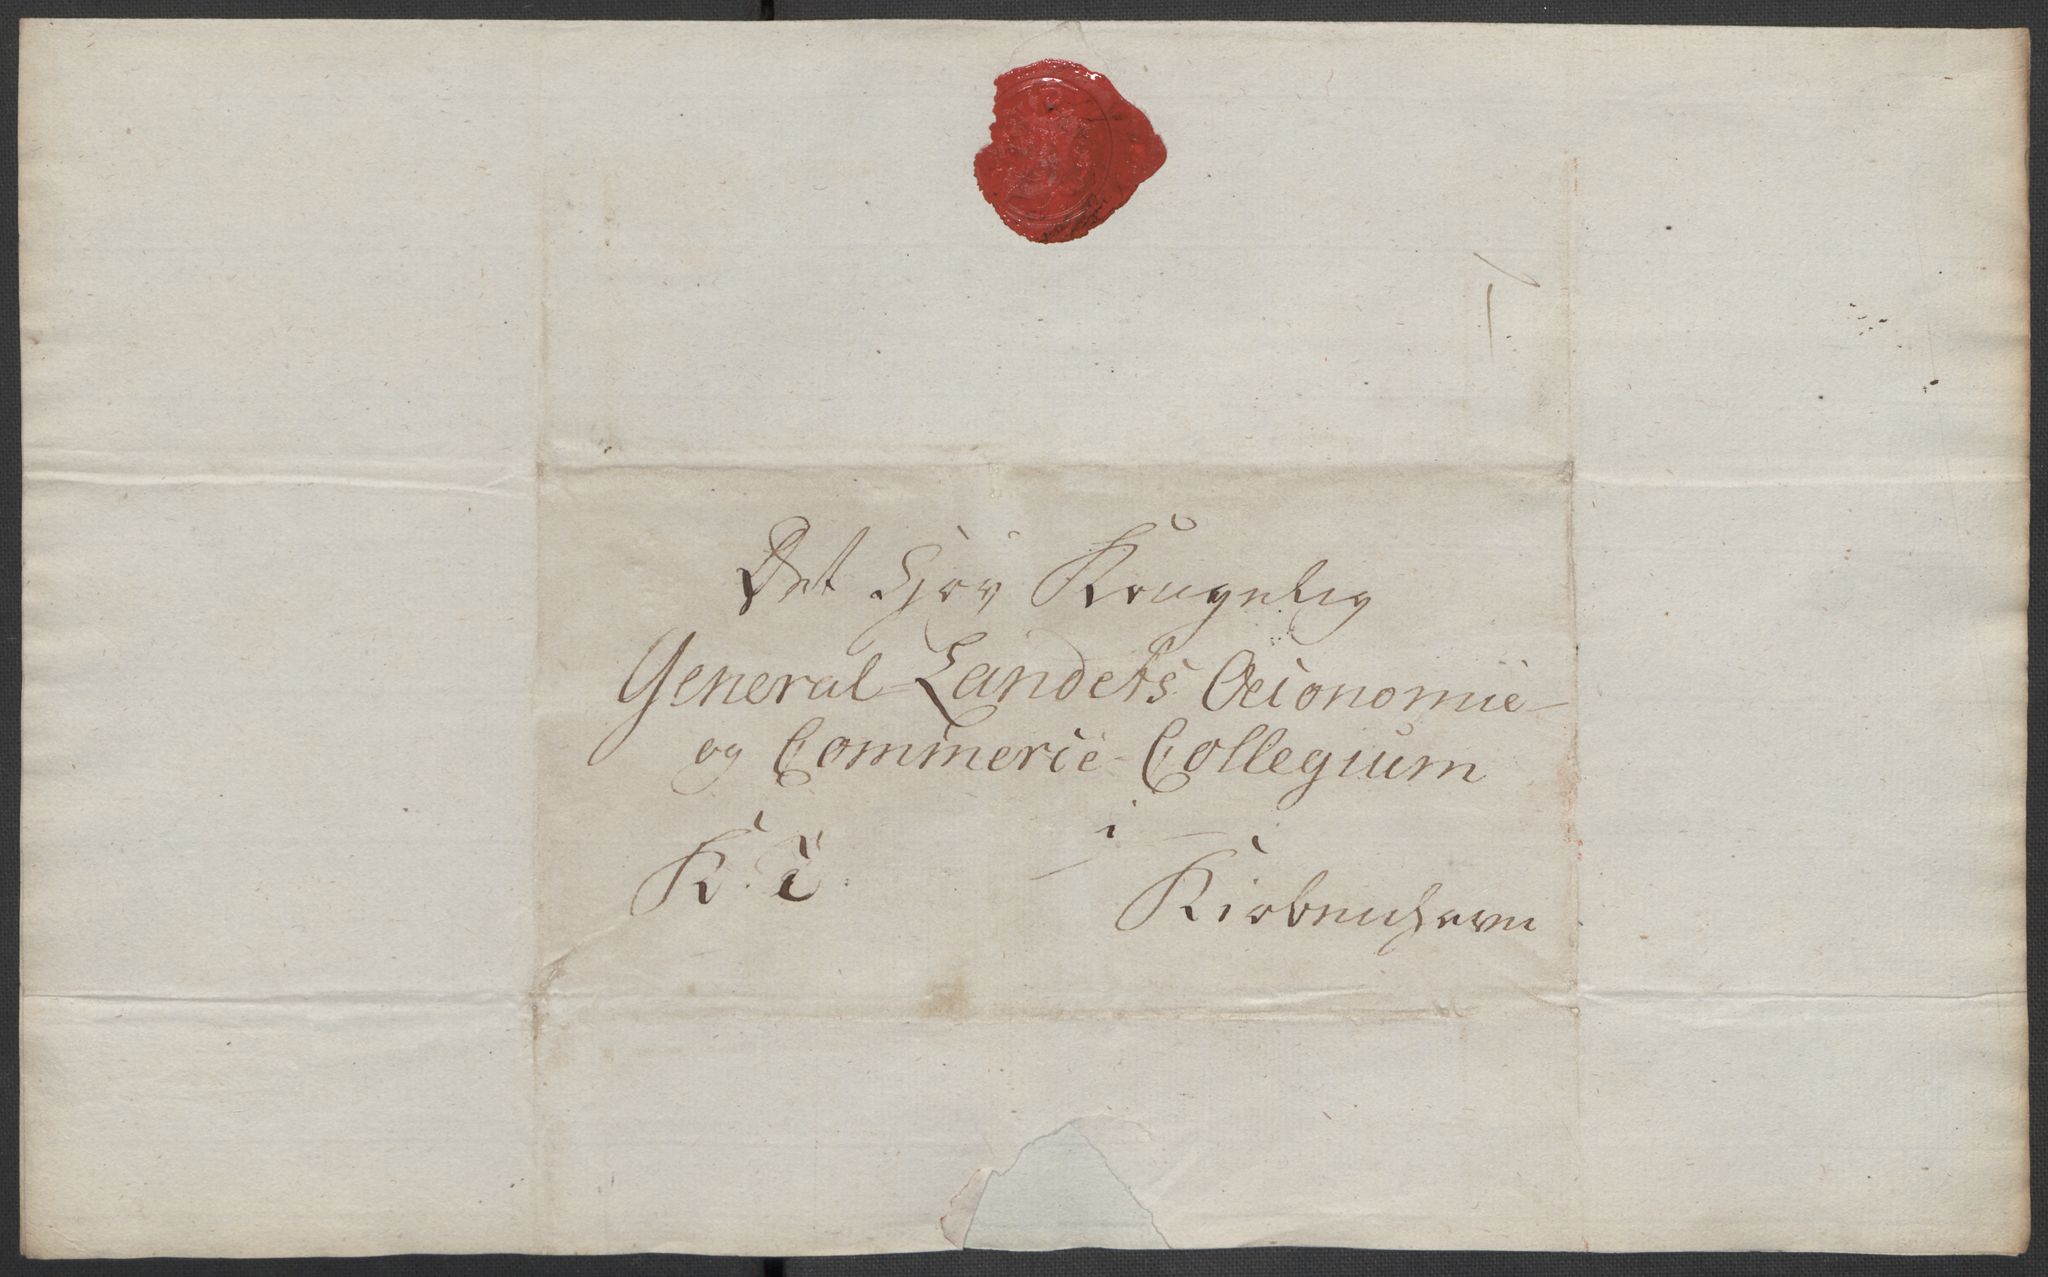 Det Høy Kongelig
General-Landets Oeconomie-
og Commerce-Collegium
i
K. T. Kiøbenhavn